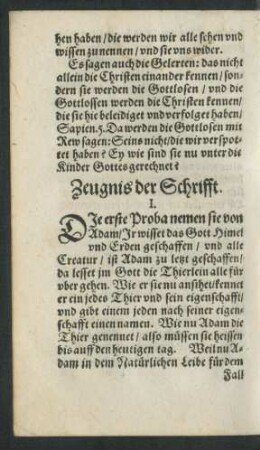 hen haben / die werden wir alle sehen vnd
wissen zu nennen / vnd sie vns wider.
Es sagen auch die Gelerten: das nicht
allein die Christen einander kennen / son-
dern sie werden die Gottlosen / vnd die
Gottlossen werden die Christen kennen /
die sie hie beleidiget vnd verfolget haben /
Sapien. 5. Da werden die Gottlosen mit
Rew sagen: Seins nicht / die wir verspot-
tet haben? Ey wie sind sie nu vnter die
Kinder Gottes gerechnet?
Zeugnis der Schrifft.
I.
DIe erste Proba nemen sie von
Adam / Jr wisset das Gott Himel
vnd Erden geschaffen / vnd alle
Creatur / ist Adam zu letzt geschaffen /
da lesset jm Gott die Thierlein alle für
vber gehen. Wie er sie nu ansihet / kennet
er ein jedes Thier vnd sein eigenschafft /
vnd gibt einem jeden nach seiner eigen-
schafft einen namen. Wie nu Adam die
Thier genennet / also müssen sie heissen
bis auff den heutigen tag. Weil nu A-
dam in dem Natürlichen Leibe für dem
Fall